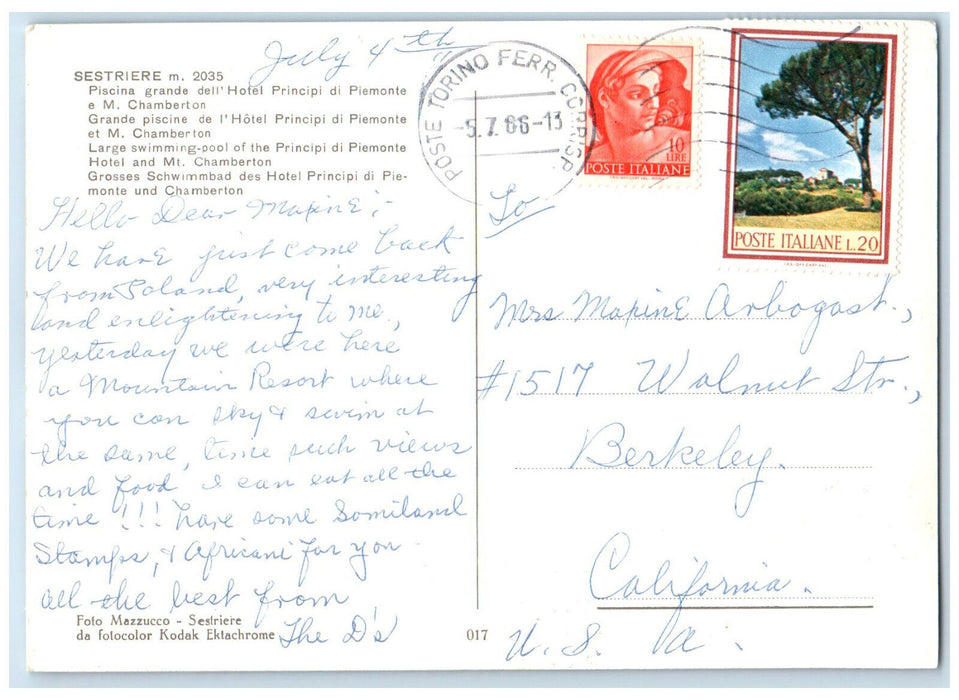 July 4th
SESTRIERE m. 2035
Piscina grande dell'Hotel Principi di Piemonte
e M. Chamberton
Grande piscine de l'Hôtel Principi di Piemonte
et M. Chamberton
Large swimming-pool of the Principi di Piemonte
Hotel and Mt. Chamberton
Grosses Schwimmbad des Hotel Principi di Pie-
monte und Chamberton
Hello Dear Maxine,-
We have just come back
from Poland, very interesting
and enlightening to me,
yesterday we were here
a Mountain Resort where
you can sky & swim at
the same, time such views
and food I can eat all the
time!!! have some Somiland
Stamps, & Africani for you
all the best from
The D's
Foto Mazzucco - Sestriere
da fotocolor Kodak Ektachrome
017
POSTE TORINO FERR. CORRISP.
-5.7.66-13
10
LIRE
POSTE ITALIANE
POSTE ITALIANE L.20
To
Mrs Maxine Arbogast.,
#1517 Walnut Str.,
Berkeley.
California.
U. S. a.